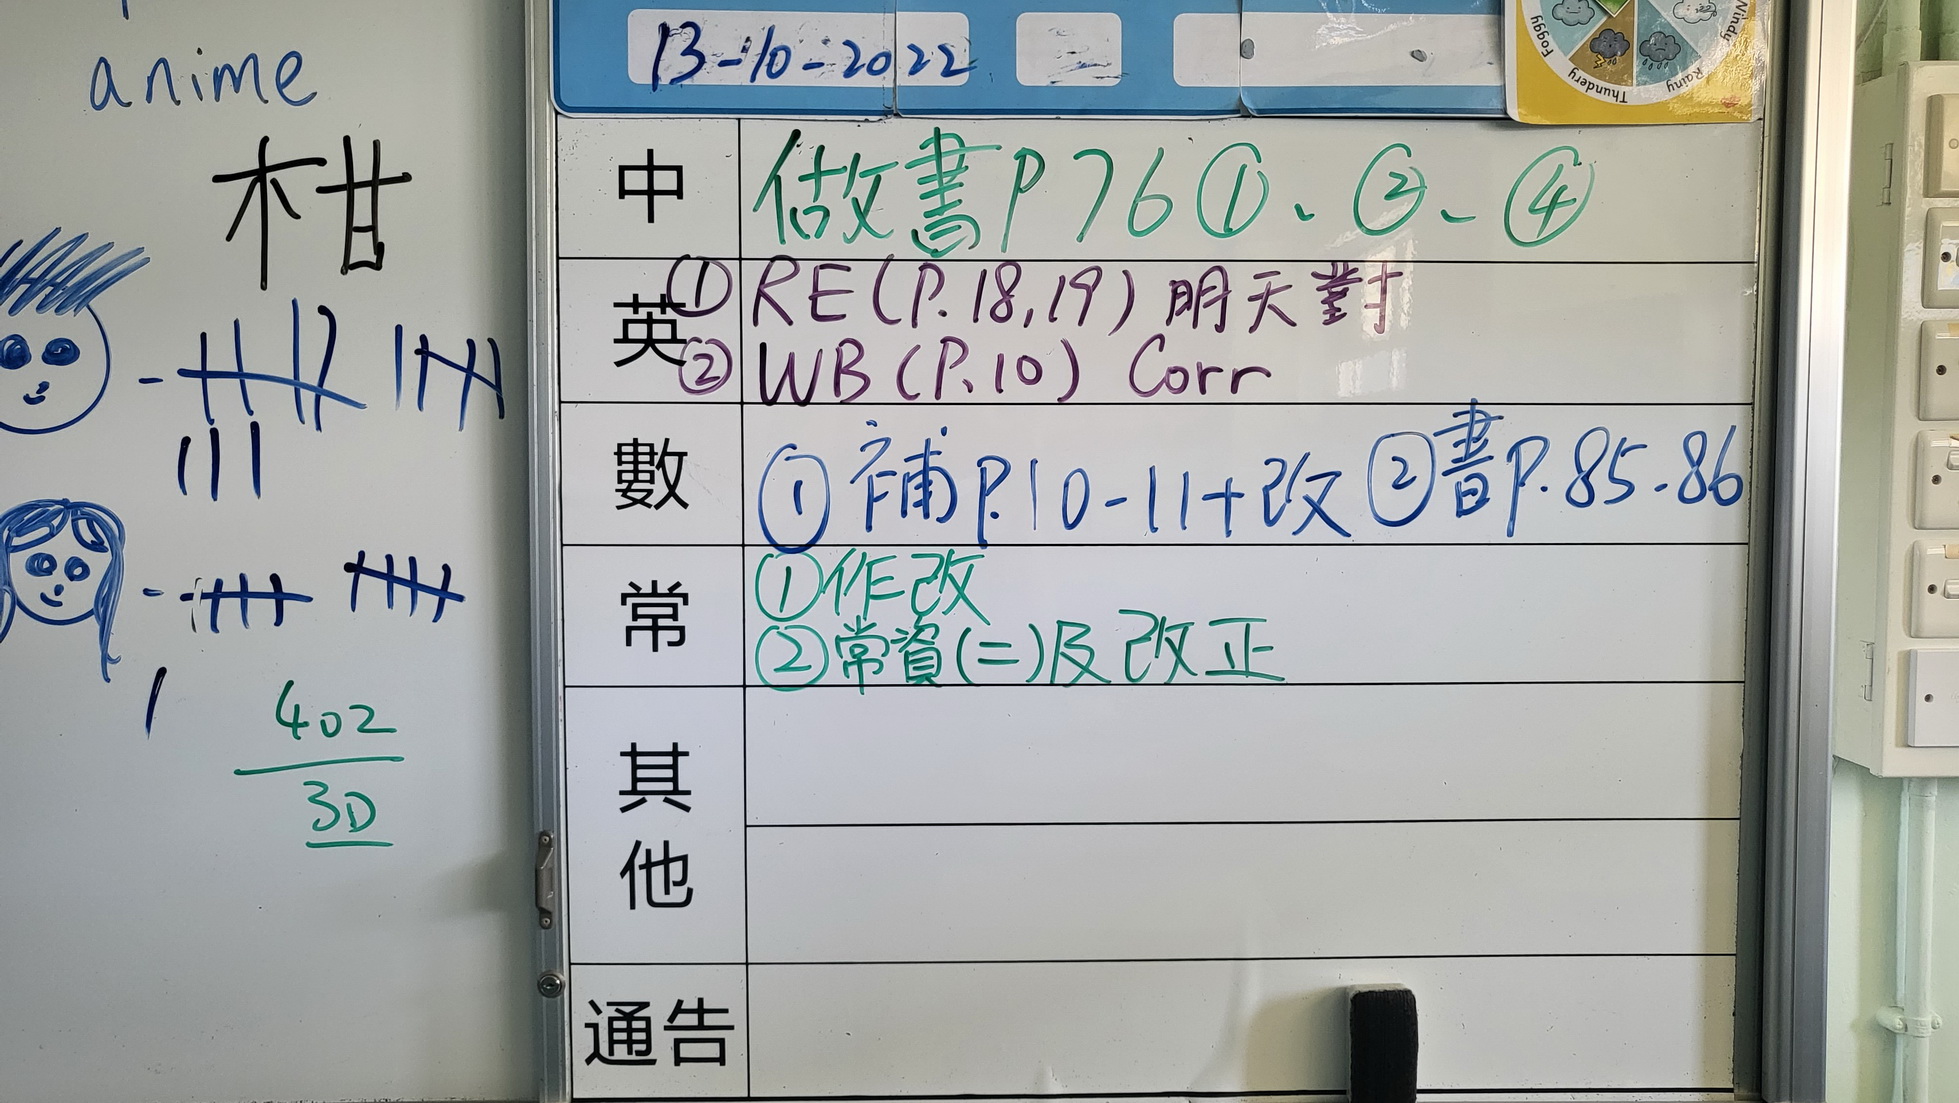 anime
柑
402
30
13-10-2022
Foggy
Thundery
Rainy
Windy
中
做書P76①、②、④
英
①RE(P.18,19)明天對
②WB(P.10) Corr
數
①補P.10-11+改②書P.85-86
常
①作改
②常資(二)及改正
其他
通告